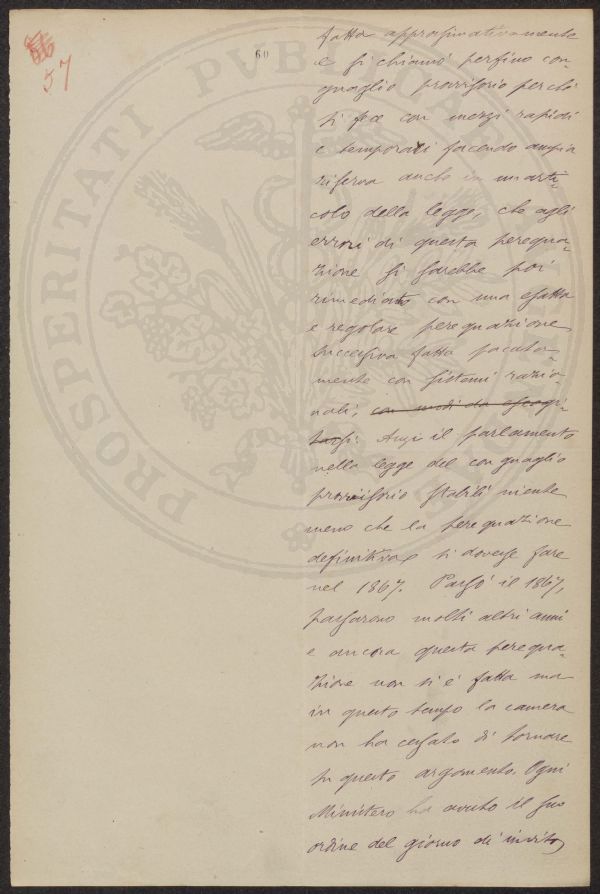 57
60
PROSPERITATI PUBLICAE
fatta approssimativamente
e si chiamò perfino con-
guaglio provvisorio perchè
si fece con mezzi rapidi
e temporati facendo ampia
riserva anche in un arti-
colo della legge, che agli
errori di questa perequa-
zione si sarebbe poi
rimediato con una esatta
e regolare perequazione
successiva fatta pacata-
mente con sistemi razio-
nali, con modi da escogi-
tarsi. Anzi il parlamento
nella legge del conguaglio
provvisorio stabilì niente
meno che la perequazione
definitiva si dovesse fare
nel 1867. Passò il 1867,
passarono molti altri anni
e ancora questa perequa-
zione non si è fatta ma
in questo tempo la camera
non ha cessato di tornare
su questo argomento. Ogni
Ministero ha avuto il suo
ordine del giorno di invito